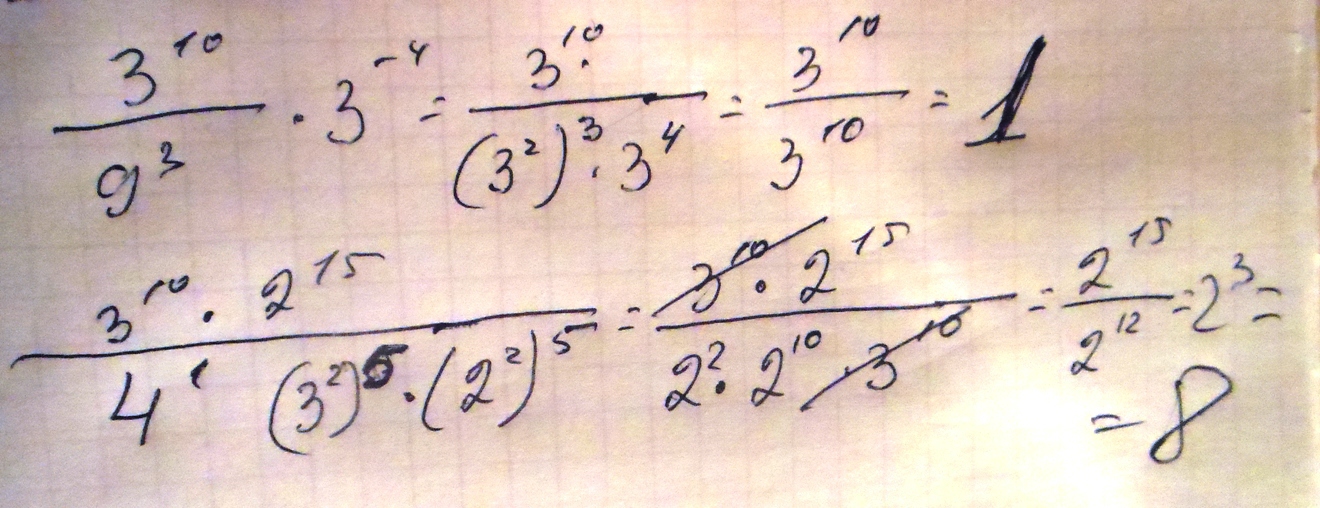 3^10 / 9^3 · 3^-4 = 3^10 / (3^2)^3 · 3^4 = 3^10 / 3^10 = 1
3^10 · 2^15 / 4^1 (3^2)^5 · (2^2)^5 = 3^10 · 2^15 / 2^2 · 2^10 · 3^10 = 2^15 / 2^12 = 2^3 =
= 8